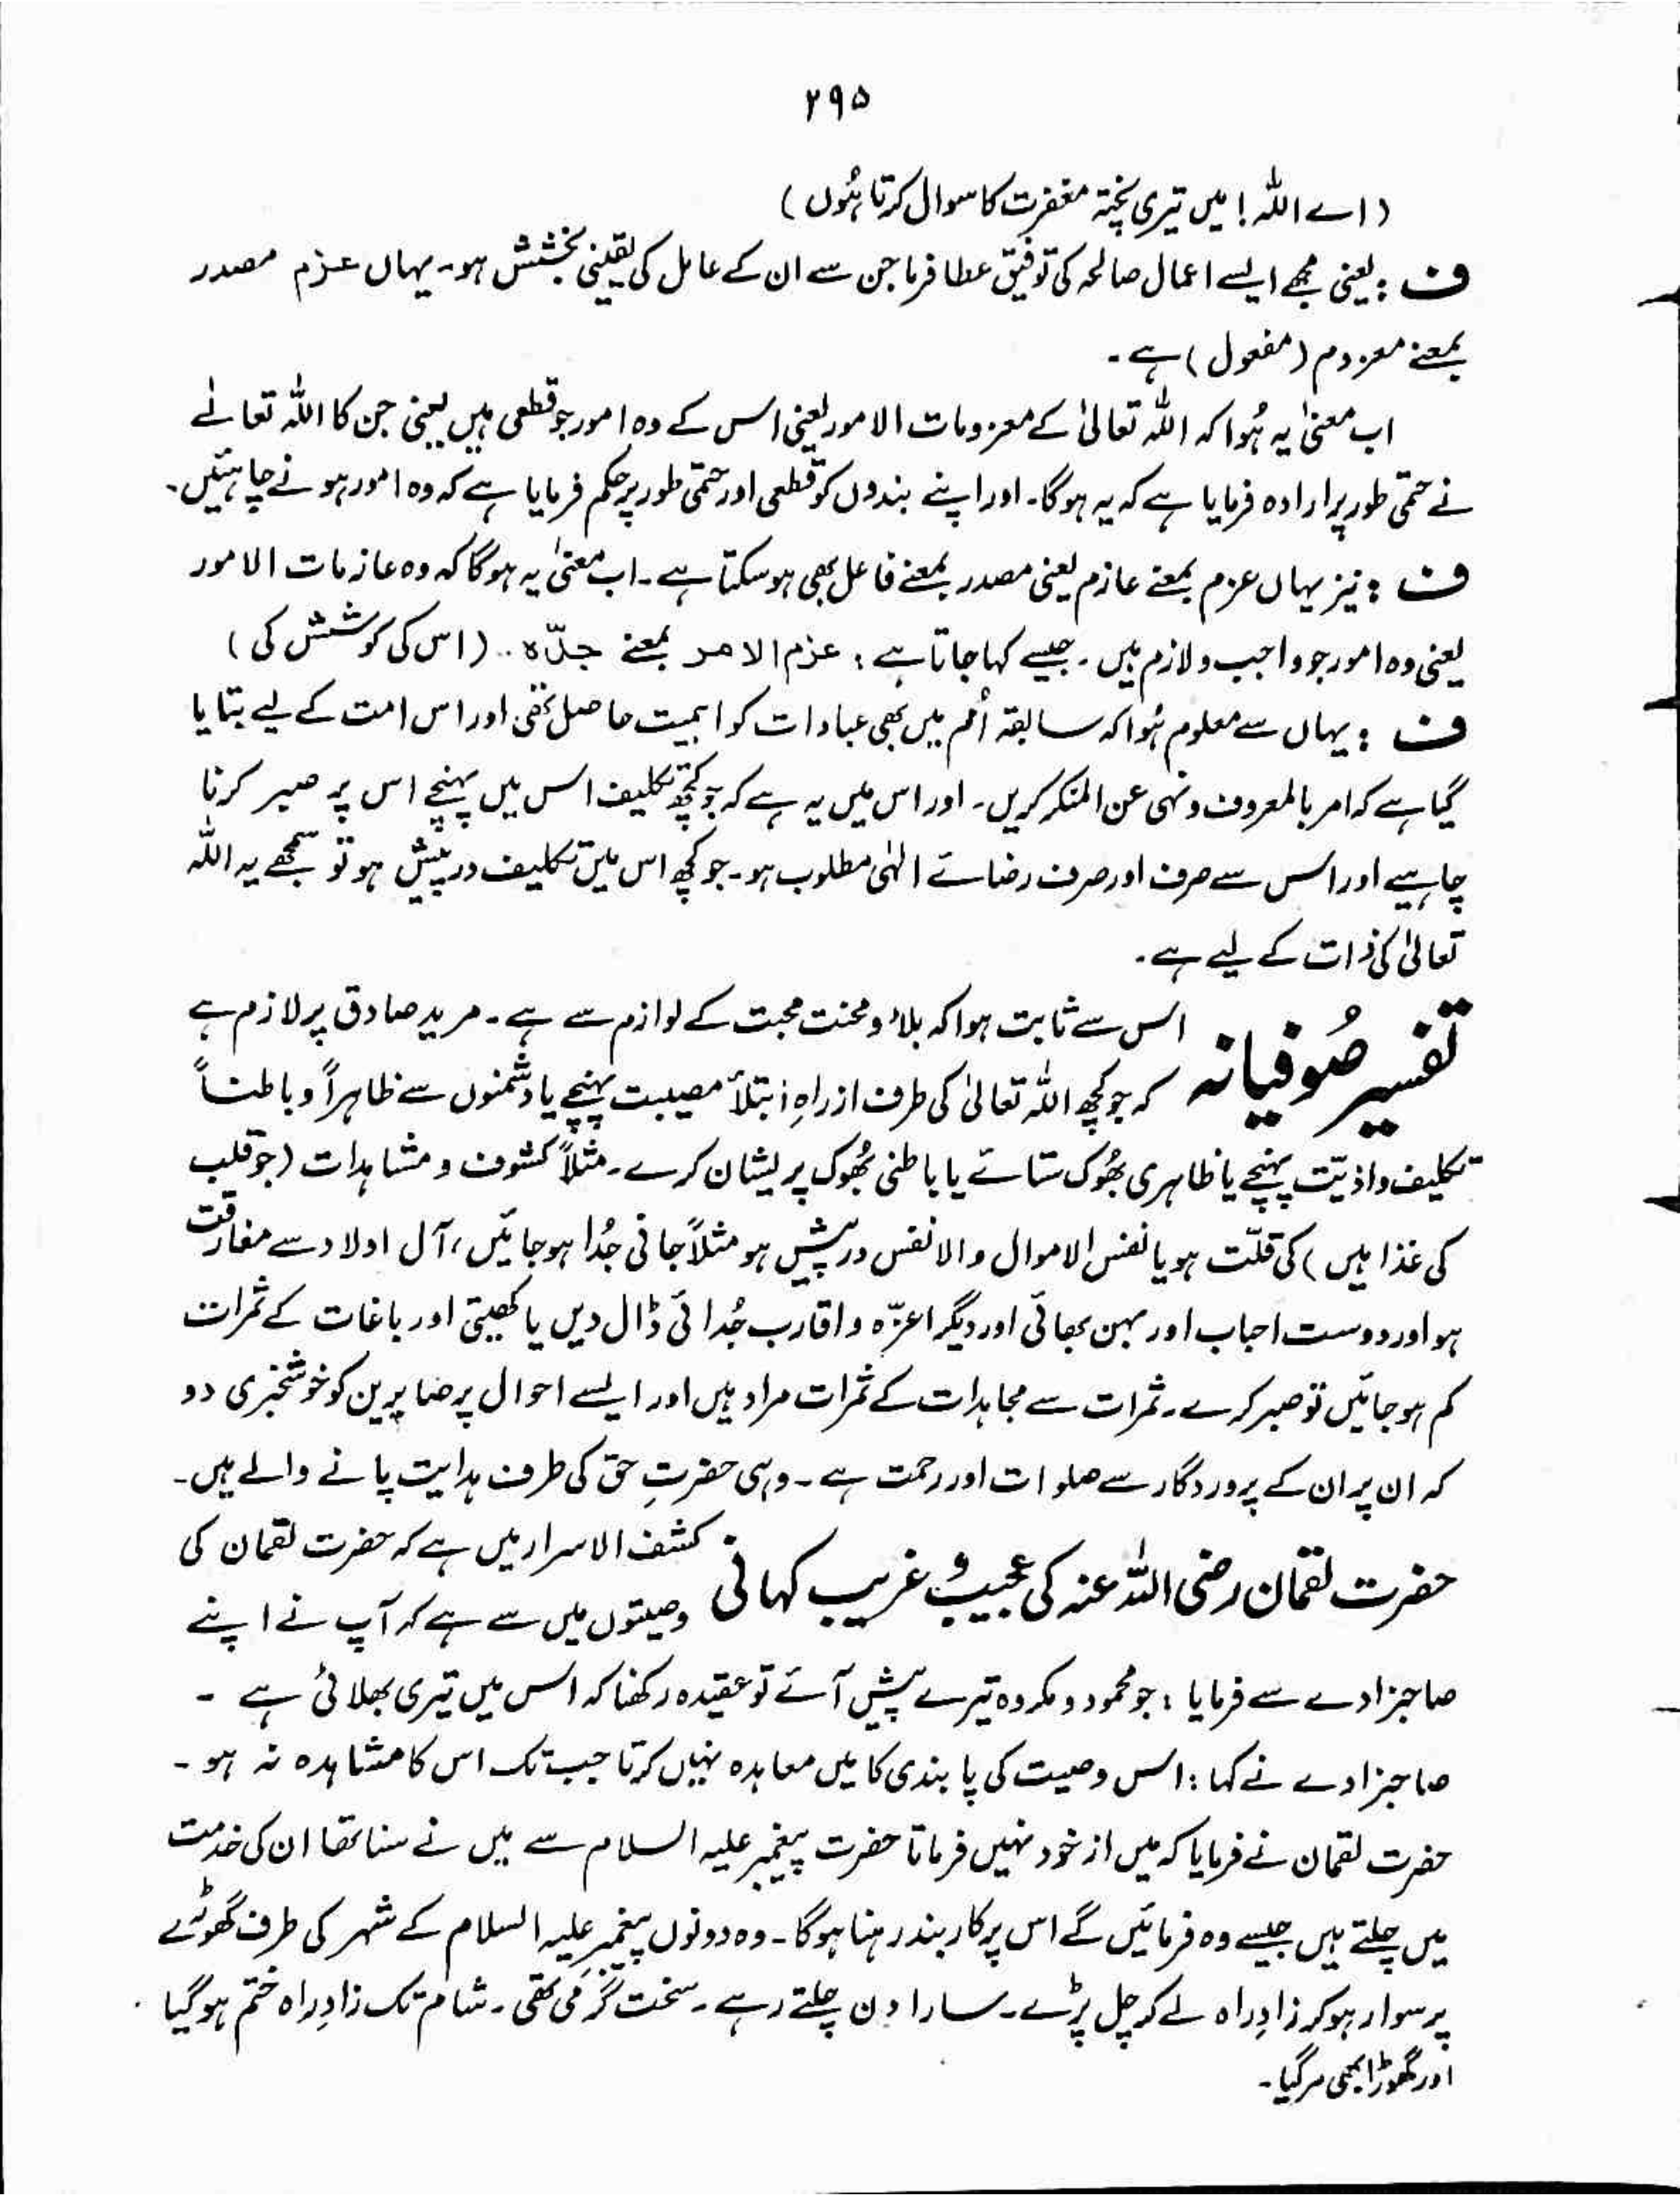 ۲۹۵
(اے اللہ! میں تیری پختہ مغفرت کا سوال کرتا ہُوں)
ف : یعنی مجھے ایسے اعمال صالحہ کی توفیق عطا فرما جن سے ان کے عامل کی یقینی بخشش ہو۔ یہاں عزم مصدر
بمعنے معزوم (مفعول) ہے۔
اب معنیٰ یہ ہُوا کہ اللہ تعالیٰ کے معزومات الامور یعنی اس کے وہ امور جو قطعی ہیں یعنی جن کا اللہ تعالےٰ
نے حتمی طور پر ارادہ فرمایا ہے کہ یہ ہوگا۔ اور اپنے بندوں کو قطعی اور حتمی طور پر حکم فرمایا ہے کہ وہ امور ہونے چاہئیں۔
ف : نیز یہاں عزم بمعنے عازم یعنی مصدر بمعنے فاعل بھی ہوسکتا ہے۔ اب معنیٰ یہ ہوگا کہ وہ عازمات الامور
یعنی وہ امور جو واجب و لازم ہیں۔ جیسے کہا جاتا ہے : عزم الامر بمعنے جدّہ ۔۔ (اس کی کوشش کی)
ف : یہاں سے معلوم ہُوا کہ سابقہ اُمم میں بھی عبادات کو اہمیت حاصل تھی اور اس امت کے لیے بتایا
گیا ہے کہ امر بالمعروف و نہی عن المنکر کریں۔ اور اس میں یہ ہے کہ جو کچھ تکلیف اس میں پہنچے اس پر صبر کرنا
چاہیے اور اس سے صرف اور صرف رضائے الٰہی مطلوب ہو۔ جو کچھ اس میں تکلیف درپیش ہو تو سمجھے یہ اللہ
تعالیٰ کی ذات کے لیے ہے۔
تفسیر صُوفیانہ اس سے ثابت ہوا کہ بلاء و محنت محبت کے لوازم سے ہے۔ مرید صادق پر لازم ہے
کہ جو کچھ اللہ تعالیٰ کی طرف از راہِ ابتلاً مصیبت پہنچے یا دشمنوں سے ظاہراً و باطناً
تکلیف و اذیّت پہنچے یا ظاہری بھُوک ستائے یا باطنی بھُوک پریشان کرے۔ مثلاً کشوف و مشاہدات (جو قلب
کی غذا ہیں) کی قلّت ہو یا نفس الاموال والانفس درپیش ہو مثلاً جانی جُدا ہوجائیں، آل اولاد سے مفارقت
ہو اور دوست احباب اور بہن بھائی اور دیگر اعزّہ و اقارب جُدائی ڈال دیں یا کھیتی اور باغات کے ثمرات
کم ہوجائیں تو صبر کرے۔ ثمرات سے مجاہدات کے ثمرات مراد ہیں اور ایسے احوال پر صابرین کو خوشخبری دو
کہ ان پر ان کے پروردگار سے صلوات اور رحمت ہے۔ وہی حضرتِ حق کی طرف ہدایت پانے والے ہیں۔
حضرت لقمان رضی اللہ عنہ کی عجیب و غریب کہانی کشف الاسرار میں ہے کہ حضرت لقمان کی
وصیتوں میں سے ہے کہ آپ نے اپنے
صاحبزادے سے فرمایا : جو محمود و مکروہ تیرے پیش آئے تو عقیدہ رکھنا کہ اس میں تیری بھلائی ہے ۔
صاحبزادے نے کہا : اس وصیت کی پابندی کا میں معاہدہ نہیں کرتا جب تک اس کا مشاہدہ نہ ہو ۔
حضرت لقمان نے فرمایا کہ میں از خود نہیں فرماتا حضرت پیغمبر علیہ السلام سے میں نے سنا تھا ان کی خدمت
میں چلتے ہیں جیسے وہ فرمائیں گے اس پر کاربند رہنا ہوگا۔ وہ دونوں پیغمبر علیہ السلام کے شہر کی طرف گھوڑے
پر سوار ہوکر زادِ راہ لے کر چل پڑے۔ سارا دن چلتے رہے۔ سخت گرمی تھی۔ شام تک زادِ راہ ختم ہوگیا
اور گھوڑا بھی مر گیا۔